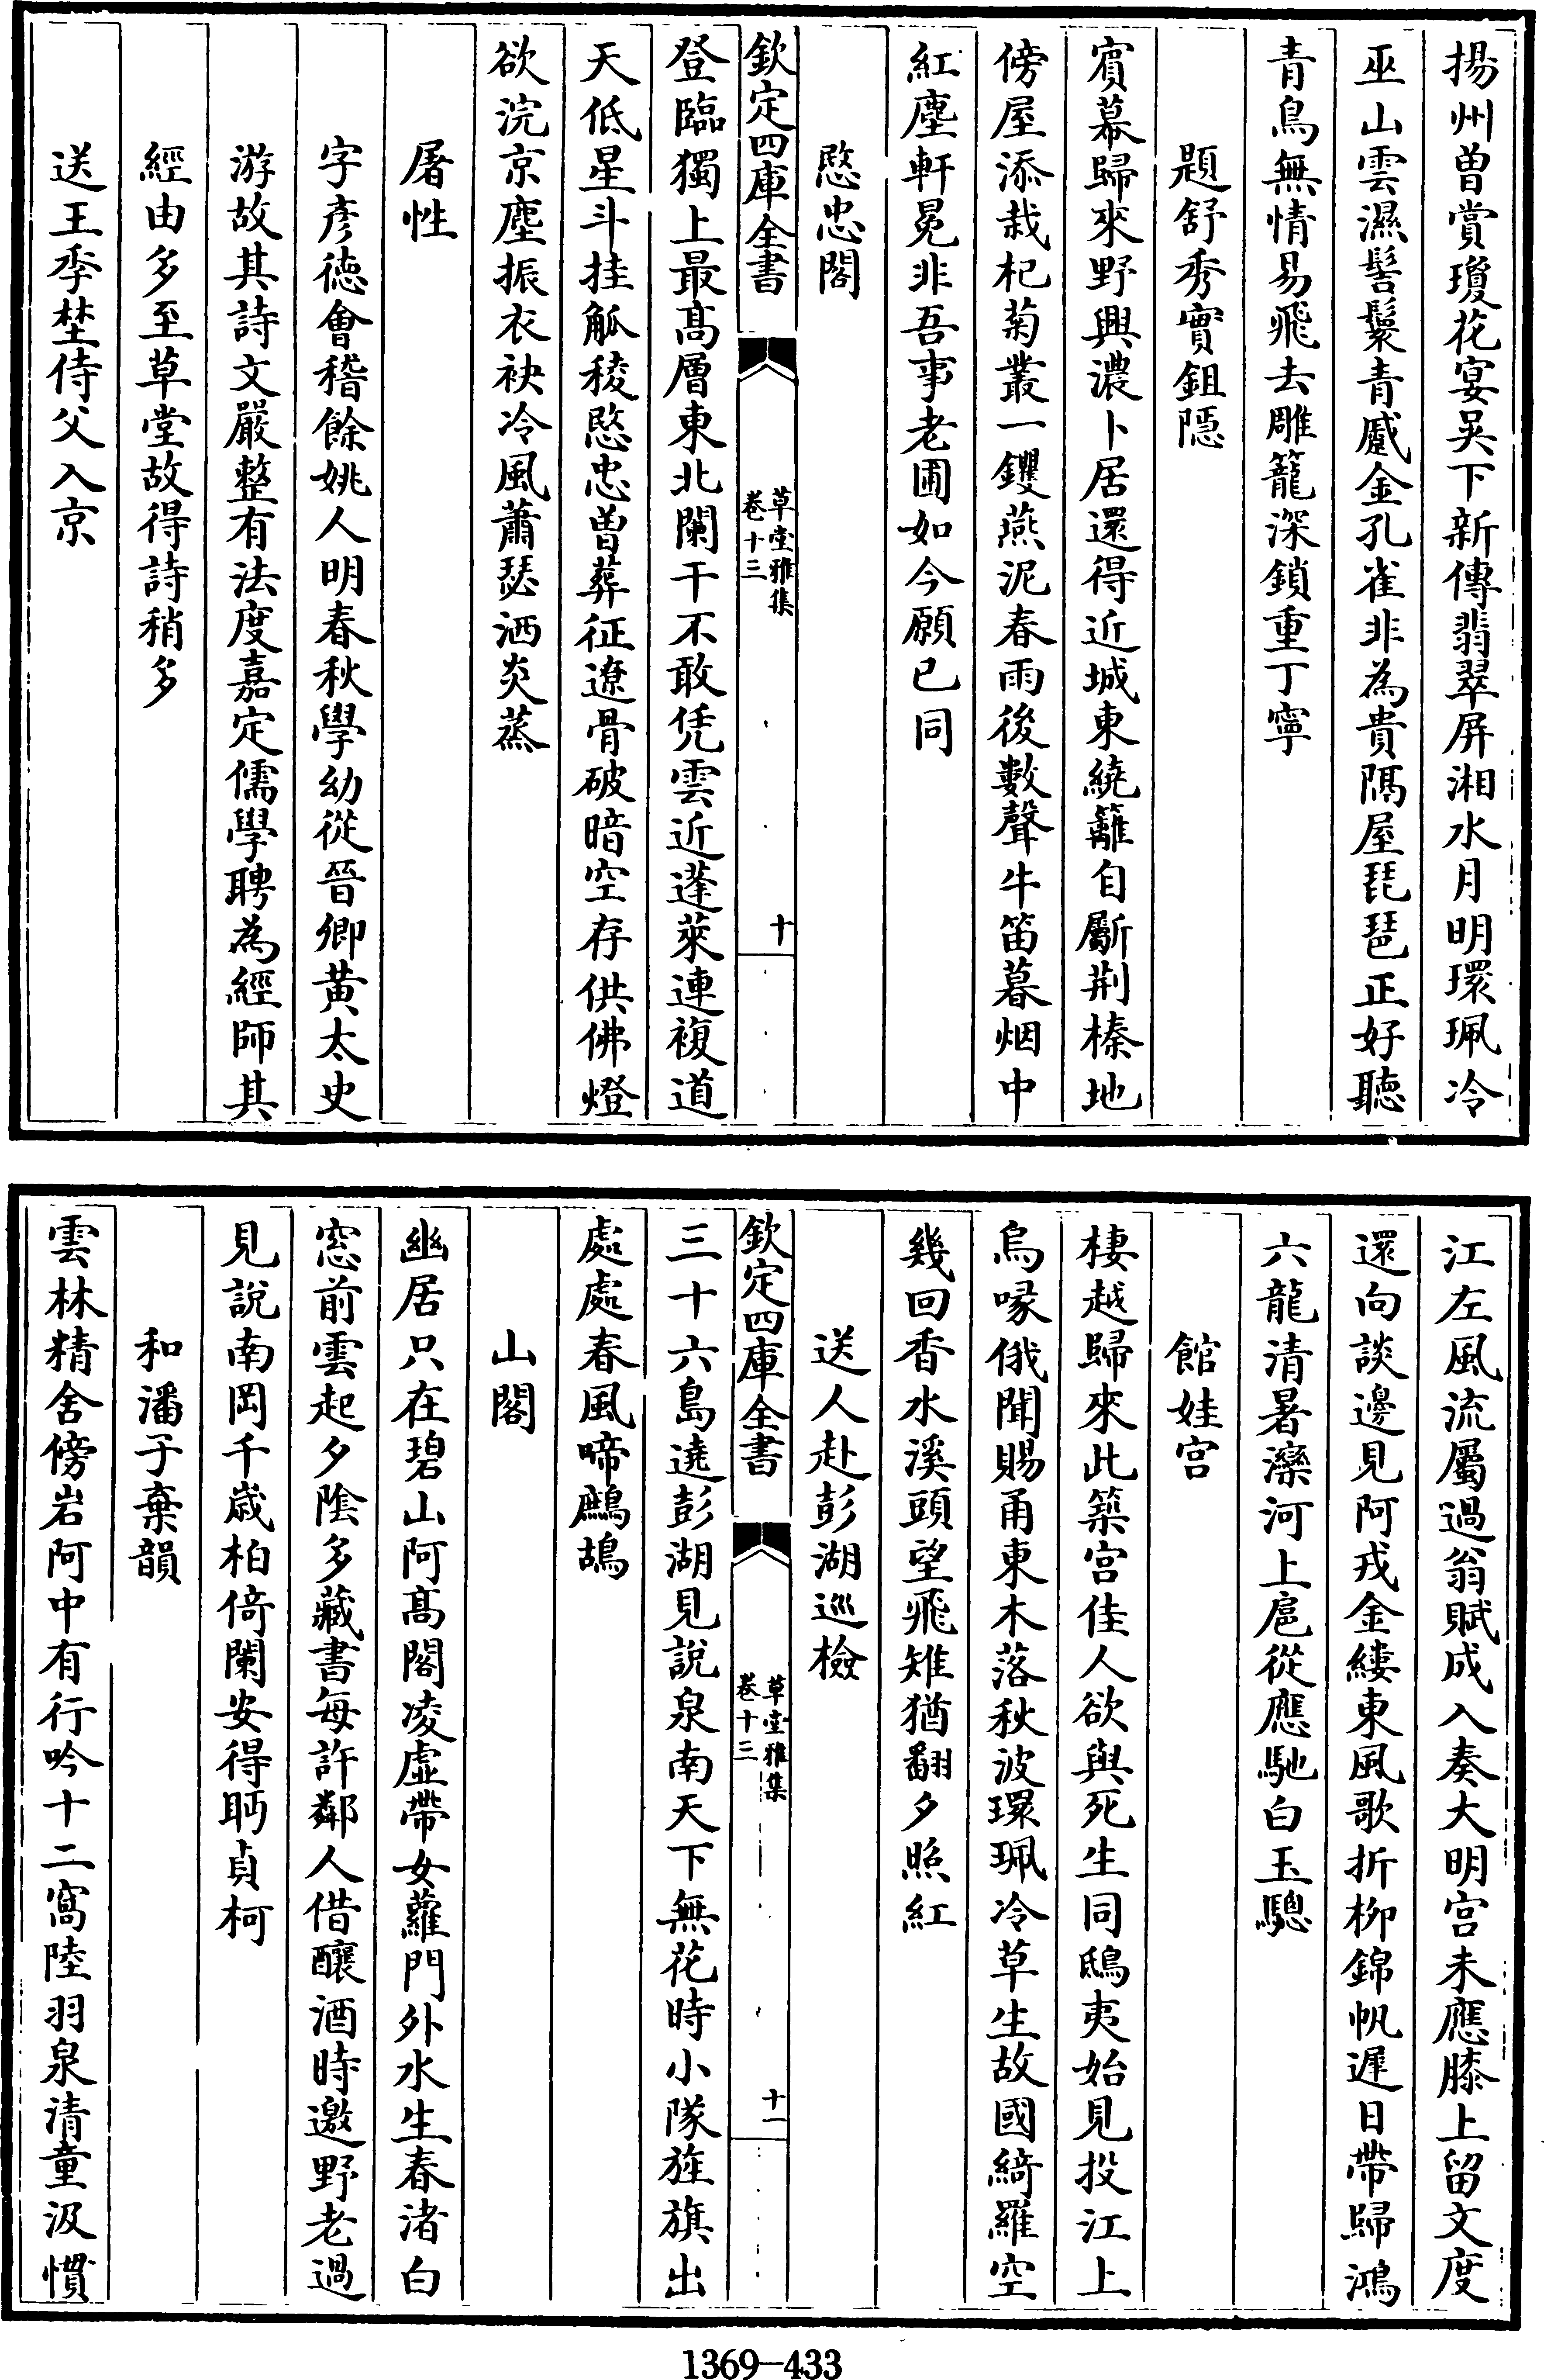 揚州曽賞瓊花宴吳下新傳翡翠屏湘水月明環珮冷
巫山雲濕髻鬟青蹙金孔雀非為貴隔屋琵琶正好聽
青鳥無情易飛去雕籠深鎖重丁寧
題舒秀實鉏隠
賔幕歸來野興濃卜居還得近城東繞籬自斸荆榛地
傍屋添栽杞菊叢一钁燕泥春雨後數聲牛笛暮烟中
紅塵軒冕非吾事老圃如今願已同
愍忠閣
欽定四庫全書
草堂雅集
卷十三
十
登臨獨上最髙層東北闌干不敢凭雲近蓬萊連複道
天低星斗挂觚稜愍忠曽葬征遼骨破暗空存供佛燈
欲浣京塵振衣袂冷風蕭瑟洒炎蒸
屠性
字彦徳會稽餘姚人明春秋學幼從晉卿黄太史
游故其詩文嚴整有法度嘉定儒學聘為經師其
經由多至草堂故得詩稍多
送王季埜侍父入京
江左風流屬過翁賦成入奏大明宫未應膝上留文度
還向談邊見阿戎金縷東風歌折柳錦帆遲日帶歸鴻
六龍清暑灤河上扈從應馳白玉驄
館娃宫
棲越歸來此築宫佳人欲與死生同鴟夷始見投江上
烏喙俄聞賜甬東木落秋波環珮冷草生故國綺羅空
幾回香水溪頭望飛雉猶翻夕照紅
送人赴彭湖巡檢
欽定四庫全書
草堂雅集
卷十三
十一
三十六島遶彭湖見說泉南天下無花時小隊旌旗出
處處春風啼鷓鴣
山閣
幽居只在碧山阿髙閣凌虚帶女蘿門外水生春渚白
窓前雲起夕陰多藏書每許鄰人借釀酒時邀野老過
見說南岡千歳柏倚闌安得眄貞柯
和潘子棄韻
雲林精舍傍岩阿中有行吟十二窩陸羽泉清童汲慣
1369-433